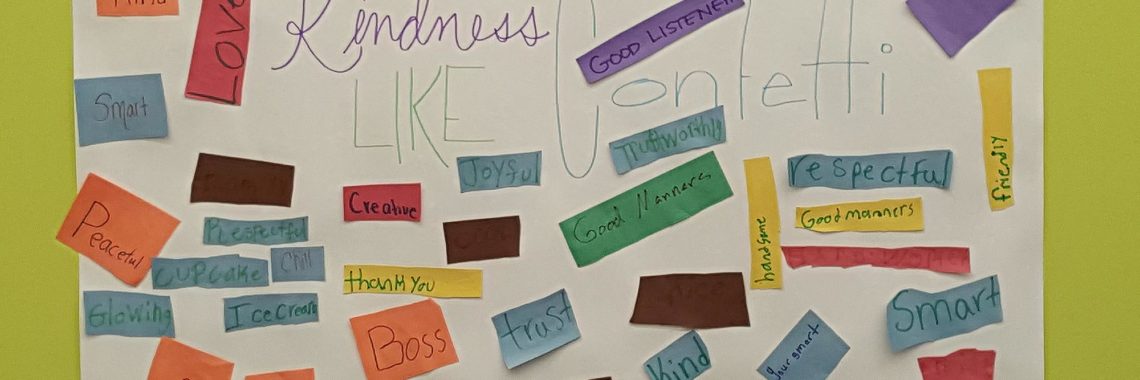 Kind
LOVE
Kindness
GOOD LISTENER
LIKE
Confetti
Smart
friendly
Trustworthy
Joyful
respectful
Creative
Good Manners
Good manners
handsome
Peaceful
Respectful
CUPCAKE
Chill
thank you
Glowing
Ice Cream
Boss
trust
Smart
Kind
your smart